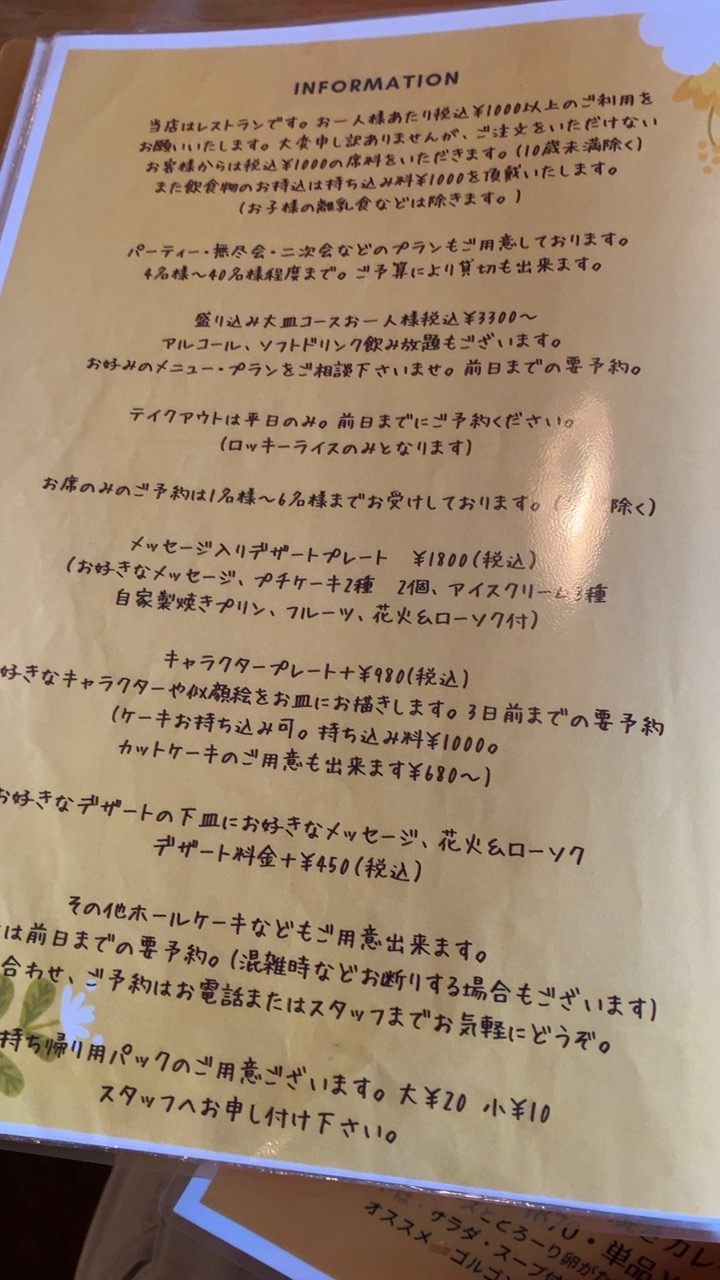 INFORMATION
当店はレストランです。お一人様あたり税込¥1000以上のご利用を
お願いいたします。大変申し訳ありませんが、ご注文をいただけない
お客様からは税込¥1000の席料をいただきます。(10歳未満除く)
また飲食物のお持込は持ち込み料¥1000を頂戴いたします。
(お子様の離乳食などは除きます。)
パーティー・無尽会・二次会などのプランもご用意しております。
4名様〜40名様程度まで。ご予算により貸切も出来ます。
盛り込み大皿コースお一人様税込¥3300〜
アルコール、ソフトドリンク飲み放題もございます。
お好みのメニュー・プランをご相談下さいませ。前日までの要予約。
テイクアウトは平日のみ。前日までにご予約ください。
(ロッキーライスのみとなります)
お席のみのご予約は1名様〜6名様までお受けしております。( 除く)
メッセージ入りデザートプレート ¥1800(税込)
(お好きなメッセージ、プチケーキ2種 2個、アイスクリーム3種
自家製焼きプリン、フルーツ、花火&ローソク付)
キャラクタープレート+¥980(税込)
好きなキャラクターや似顔絵をお皿にお描きします。3日前までの要予約
(ケーキお持ち込み可。持ち込み料¥1000。
カットケーキのご用意も出来ます¥680〜)
お好きなデザートの下皿にお好きなメッセージ、花火&ローソク
デザート料金+¥450(税込)
その他ホールケーキなどもご用意出来ます。
は前日までの要予約。(混雑時などお断りする場合もございます)
合わせ、ご予約はお電話またはスタッフまでお気軽にどうぞ。
持ち帰り用パックのご用意ございます。大¥20 小¥10
スタッフへお申し付け下さい。
・単品
とろーり卵が
は・サラダ・スープは
オススメ